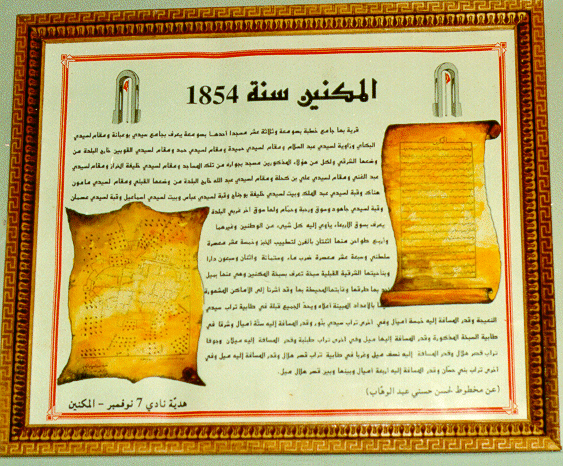 المكنين سنة 1854
قرية بها جامع خطبة بصومعة وثلاثة عشر مسجدا احدها بصومعة يعرف بجامع سيدي بوعبانة ومقام لسيدي
البكاي وزاوية لسيدي عبد السلام ومقام لسيدي حميدة ومقام لسيدي حيد ومقام لسيدي القويين خارج البلدة من
وضعها الشرقي ولكل من هؤلاء المذكورين مسجد بجواره من تلك المساجد ومقام لسيدي خليفة الخراز ومقام لسيدي
عبد الغني ومقام لسيدي علي بن كحلة ومقام لسيدي عبد الله خارج البلدة من وضعها القبلي ومقام لسيدي مامون
هناك وقبة لسيدي عبد الملك وبيت لسيدي خليفة بوجناح وقبة لسيدي عباس وبيت لسيدي اسماعيل وقبة لسيدي عصمان
وقبة لسيدي جاهود وسوق ورحبة وحمام ولها سوق آخر غربي البلدة
يعرف بسوق الاربعاء يأوي إليه كل شيء من الوطنين وغيرهما
وأربع طواحن منها اثنتان بالفرن لتطييب الخبز وخمسة عشر معصرة
سلطني وسبعة عشر معصرة ضرب ماء وستمائة واثنان وسبعون دارا
وبناحيتها الشرقية القبلية سبخة تعرف بسبخة المكنين وهي منها بميل
بالأمداد المبينة أعلاه ويحد الجميع قبلة في طابية تراب سيدي
النعيجة وقدر المسافة إليه خمسة اميال وفي أخرى تراب سيدي بنور وقدر المسافة إليه ستة أميال وشرقا في
طابية السبخة المذكورة وقدر المسافة إليها ميل وفي أخرى تراب طبلبة وقدر المسافة إليه ميلان وجوفا
تراب قصر هلال وقدر المسافة إليه نصف ميل وغربا في طابية تراب قصر هلال وقدر المسافة إليه ميل وفي
أخرى تراب بني حسان وقدر المسافة إليه اربعة اميال وبينها وبين قصر هلال ميل.
(عن مخطوط لحسن حسني عبد الوهاب)
هديّة نادي 7 نوفمبر - المكنين